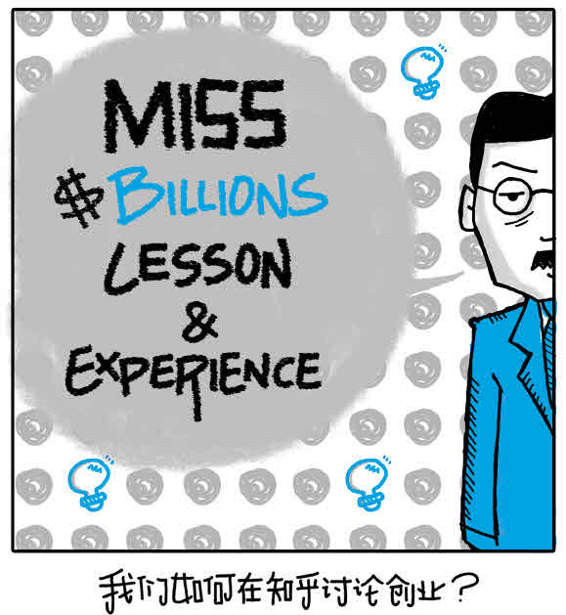 MISS
$BILLIONS
LESSON
&
EXPERIENCE
我们如何在知乎讨论创业?